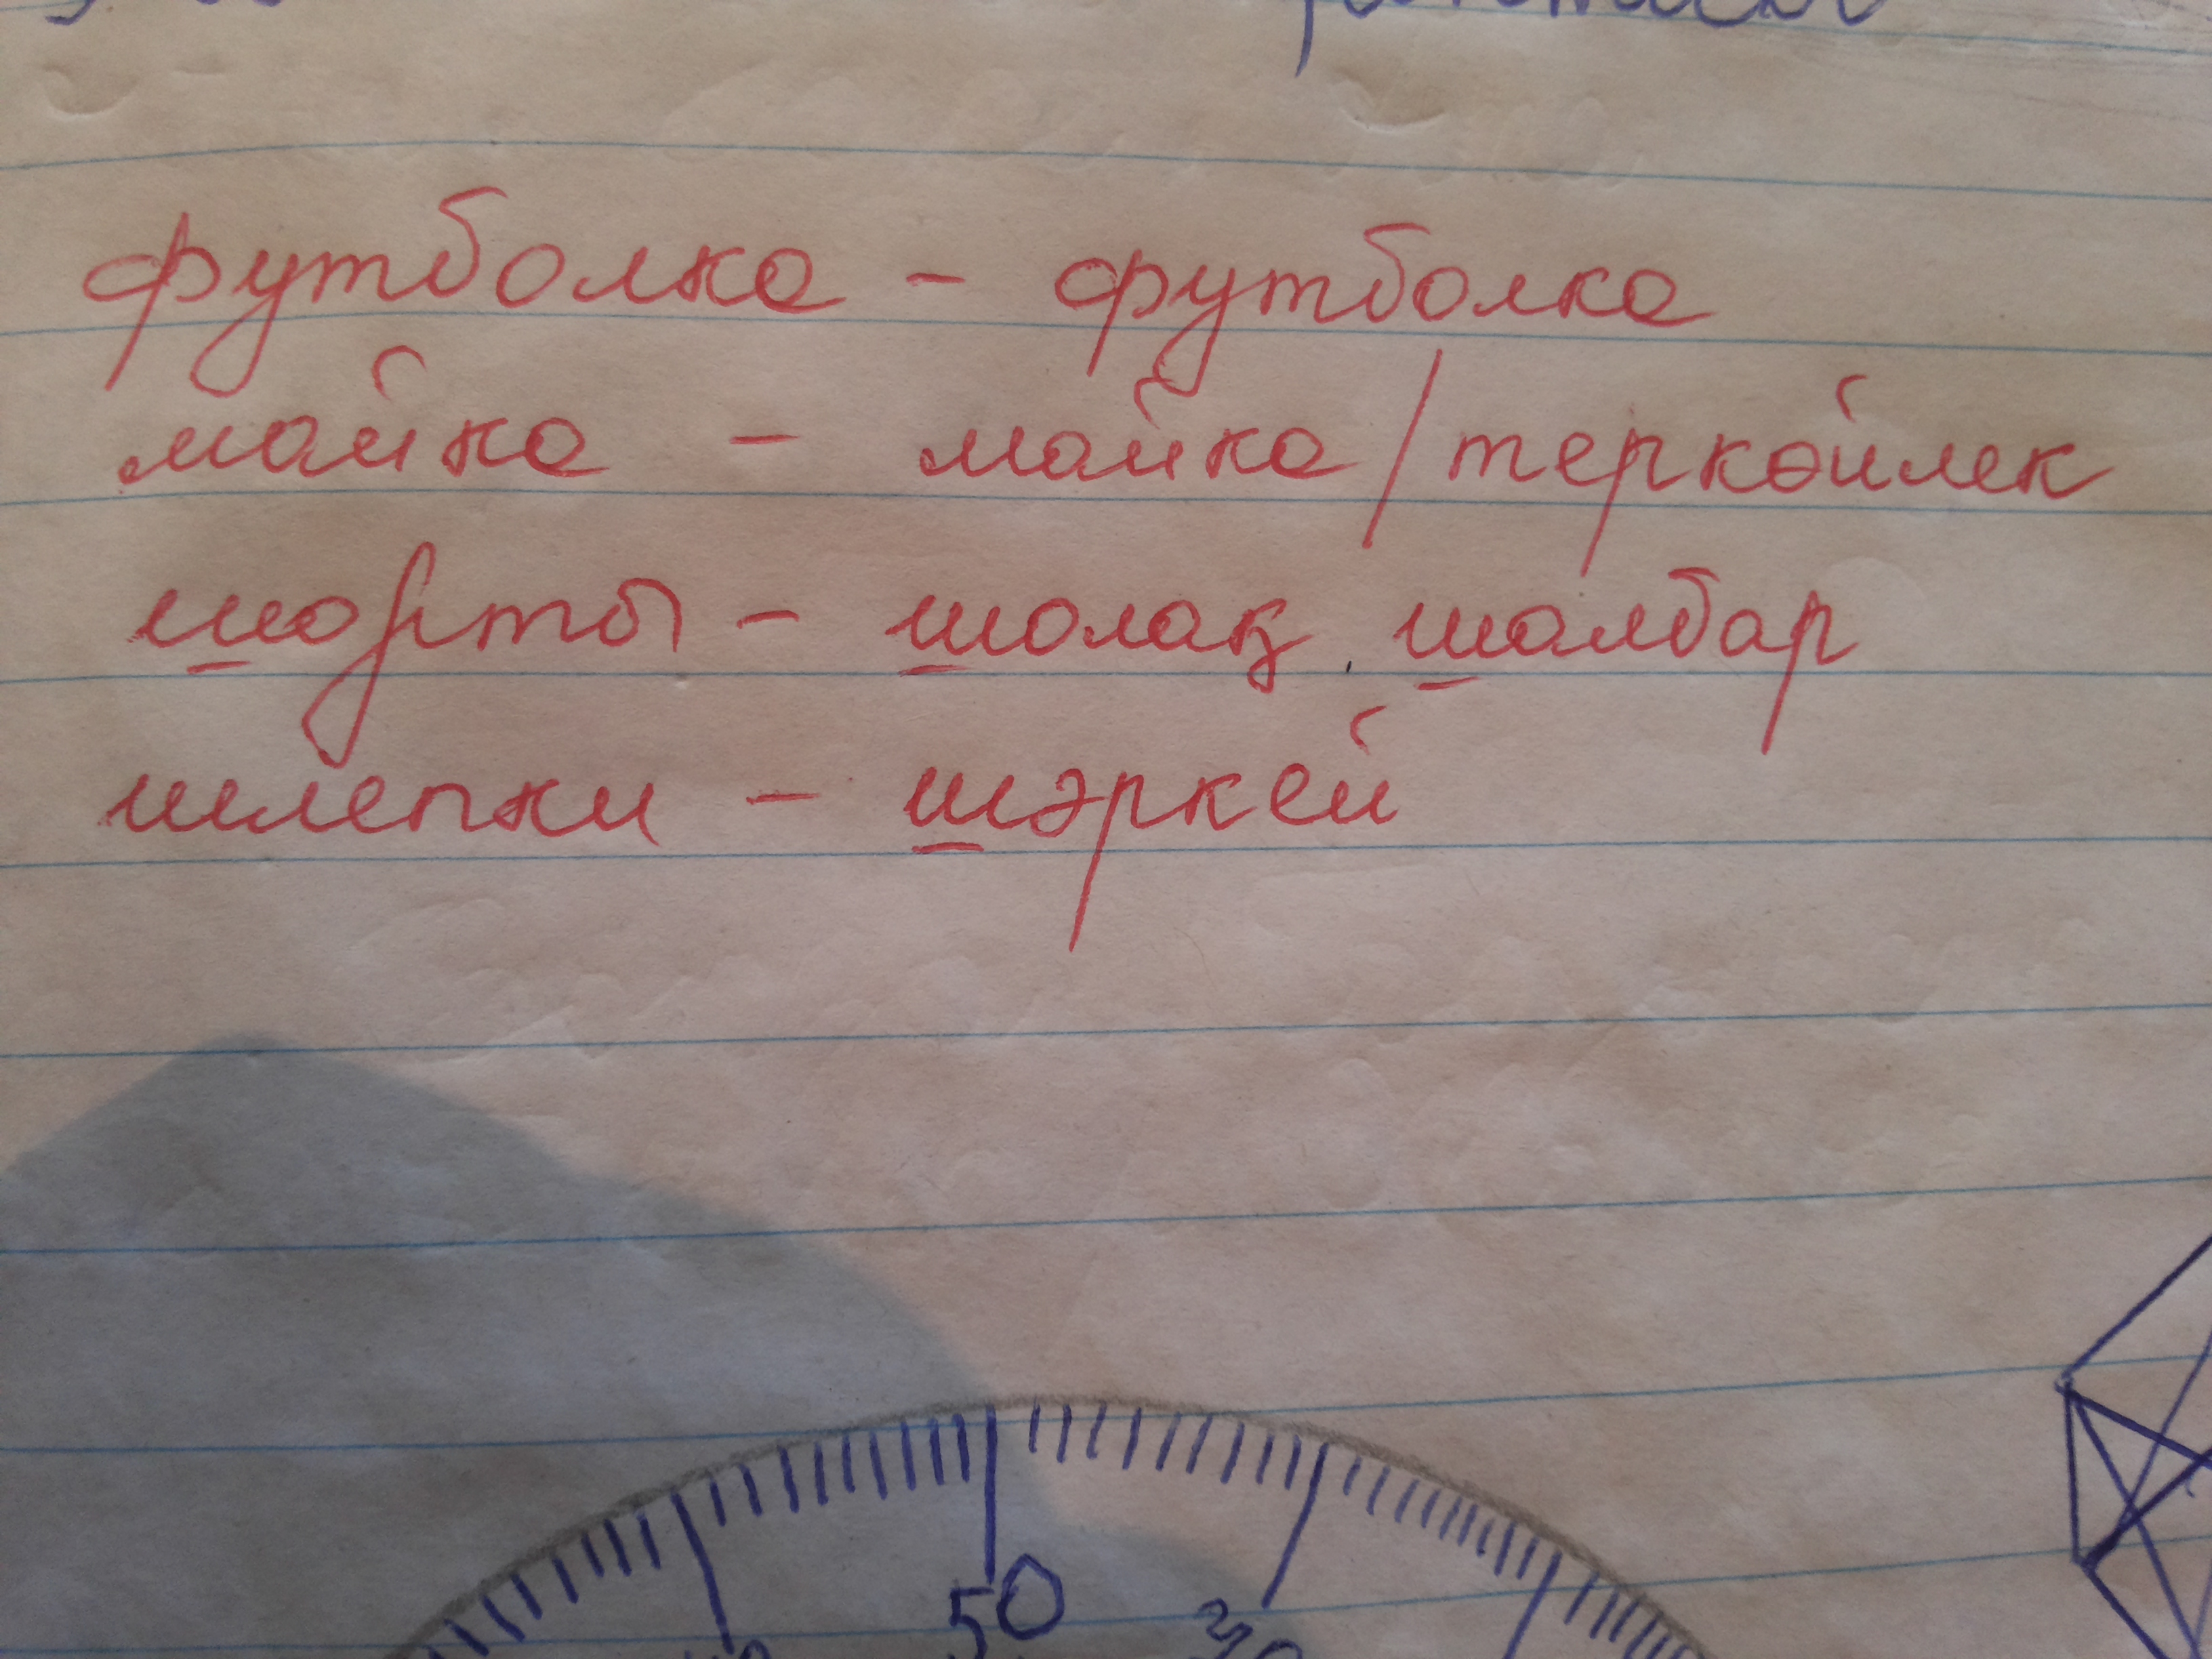 футболка - футболка
майка - майка / теркөйлек
шорты - шолақ шалбар
шлепки - шәркей
50